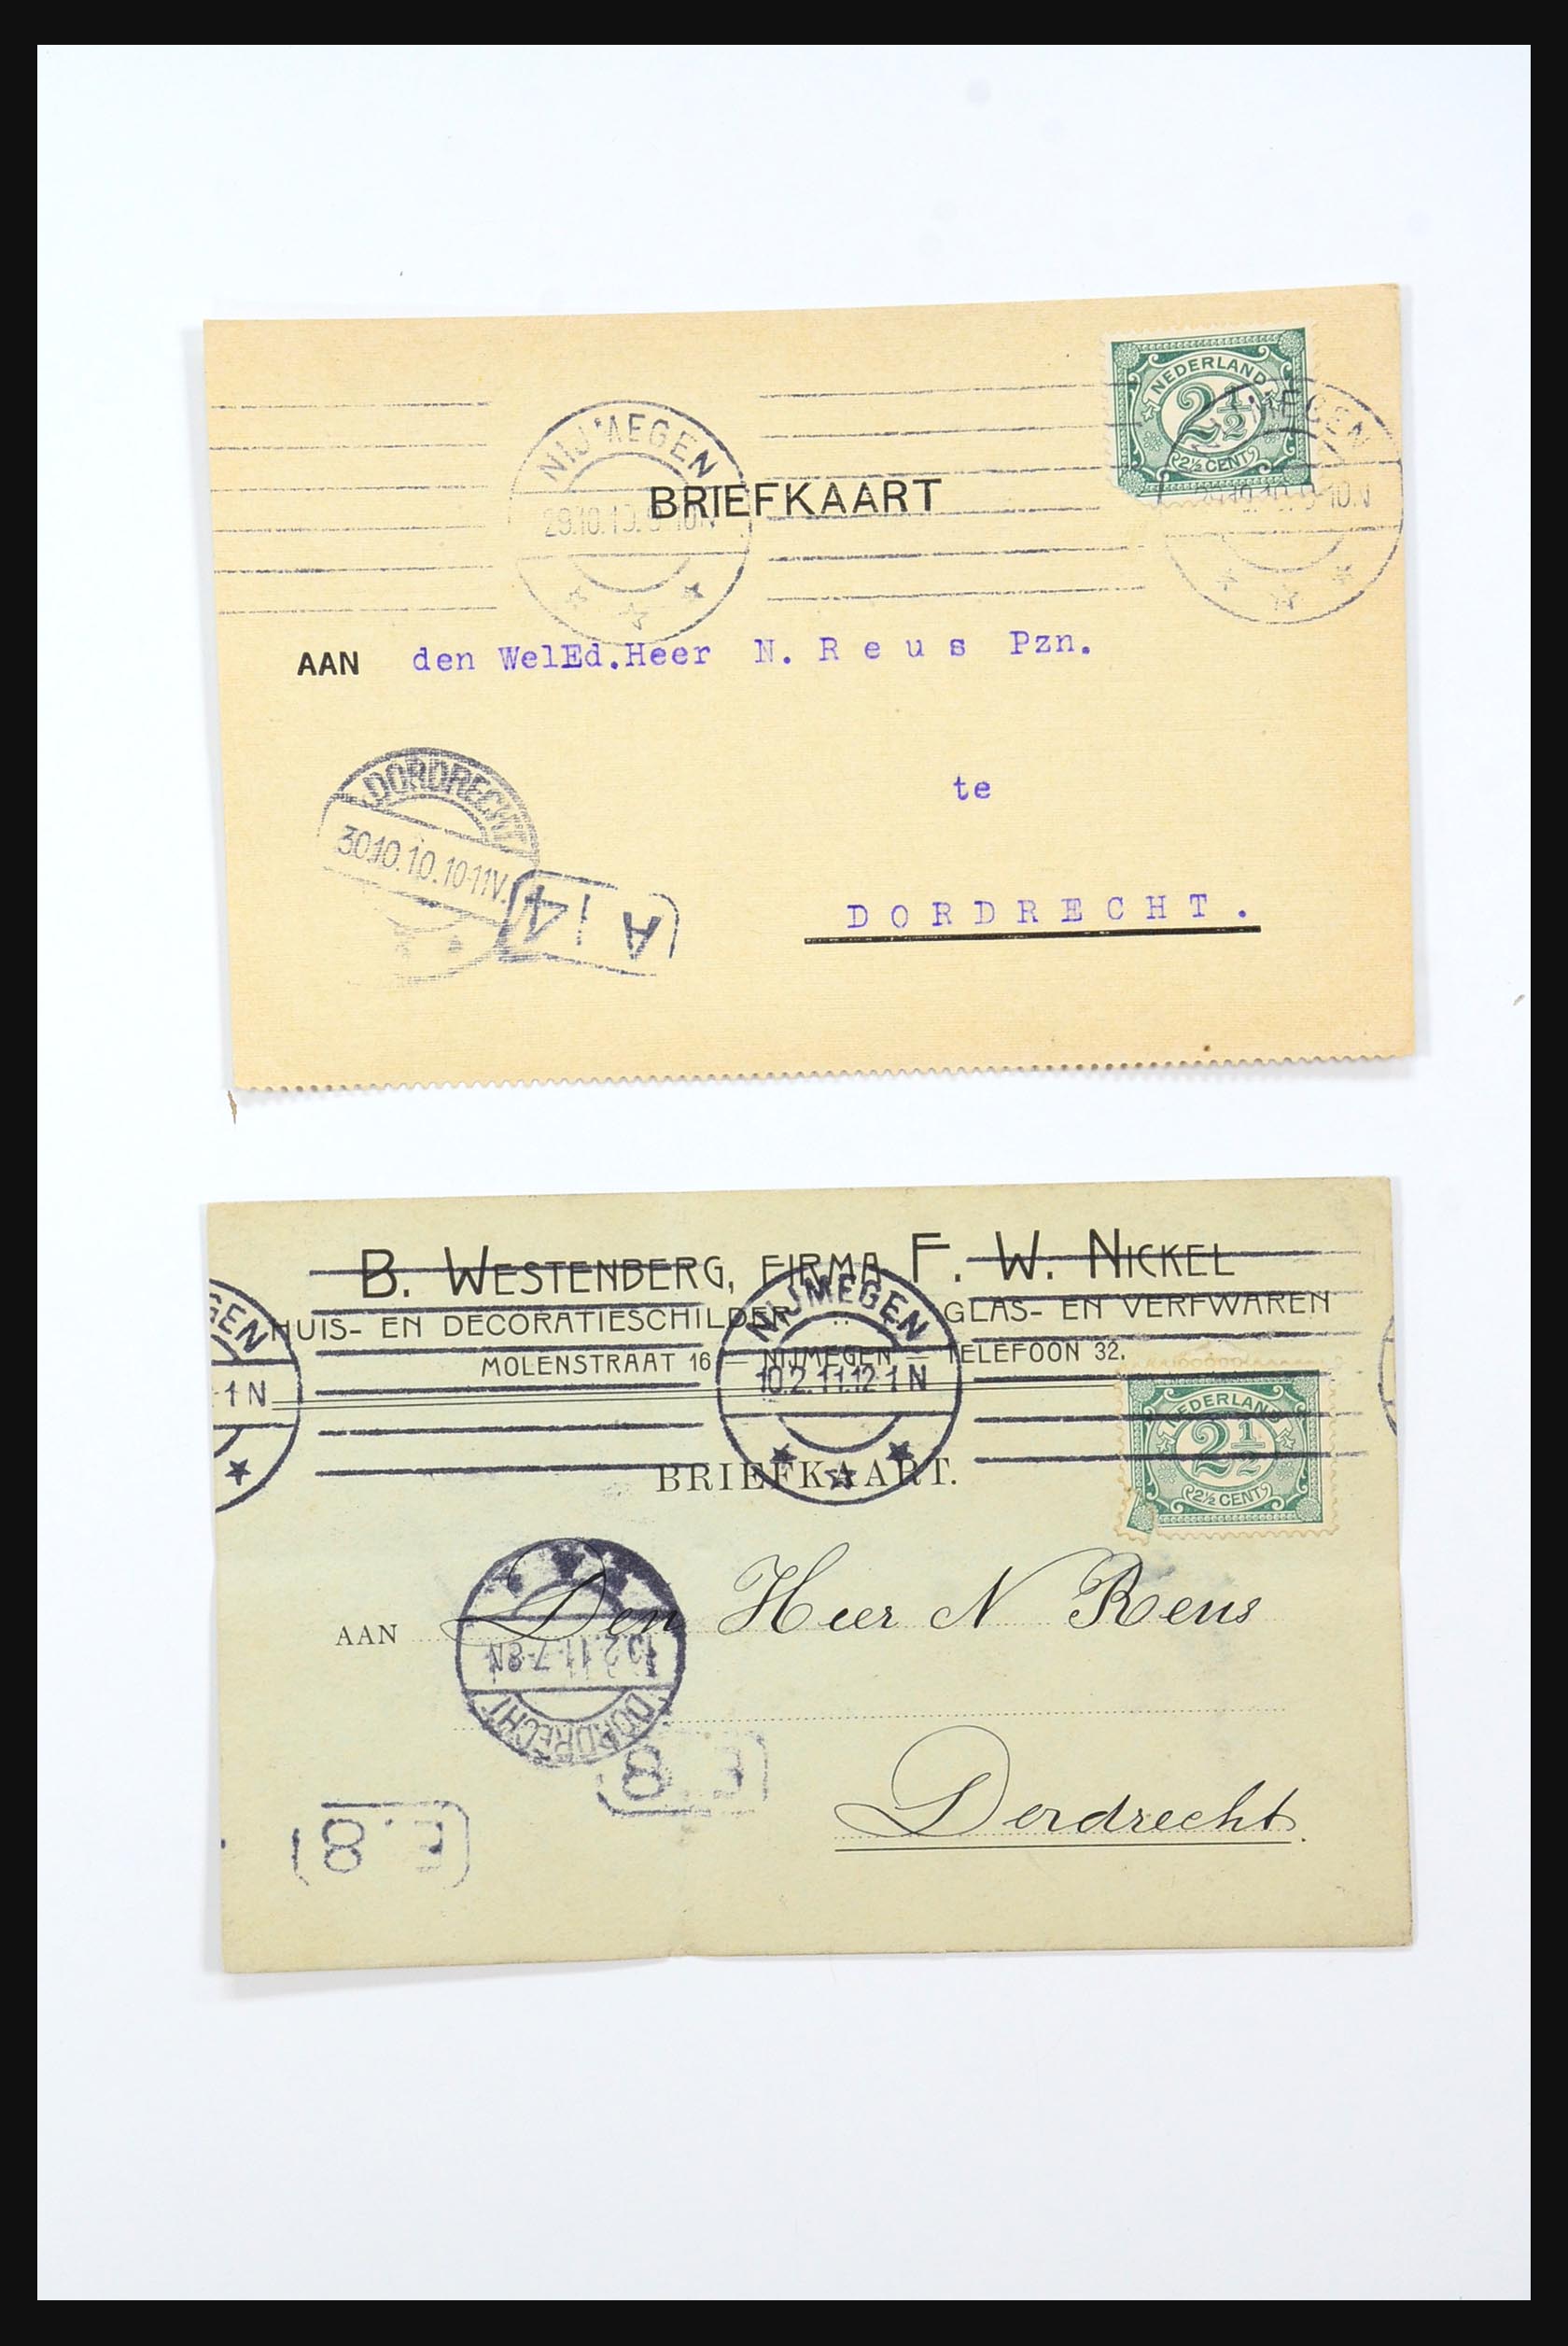 NEDERLAND
2½
2½ CENT
NIJMEGEN
29.10.10.9-10N
NIJMEGEN
29.10.10.9-10.N
BRIEFKAART
AAN den WelEd.Heer N. Reus Pzn.
te
DORDRECHT
30.10.10.10-11V.
A 4
DORDRECHT.
B. WESTENBERG, FIRMA F. W. NICKEL
HUIS- EN DECORATIESCHILDER :: GLAS- EN VERFWAREN
MOLENSTRAAT 16 — NIJMEGEN — TELEFOON 32.
NIJMEGEN
10.2.11.12-1N
GEN
1N
NEDERLAND
2½
2½ CENT
BRIEFKAART.
AAN Den Heer N Reus
DORDRECHT
10.2.11.7-8N
Dordrecht.
E 8
E.8